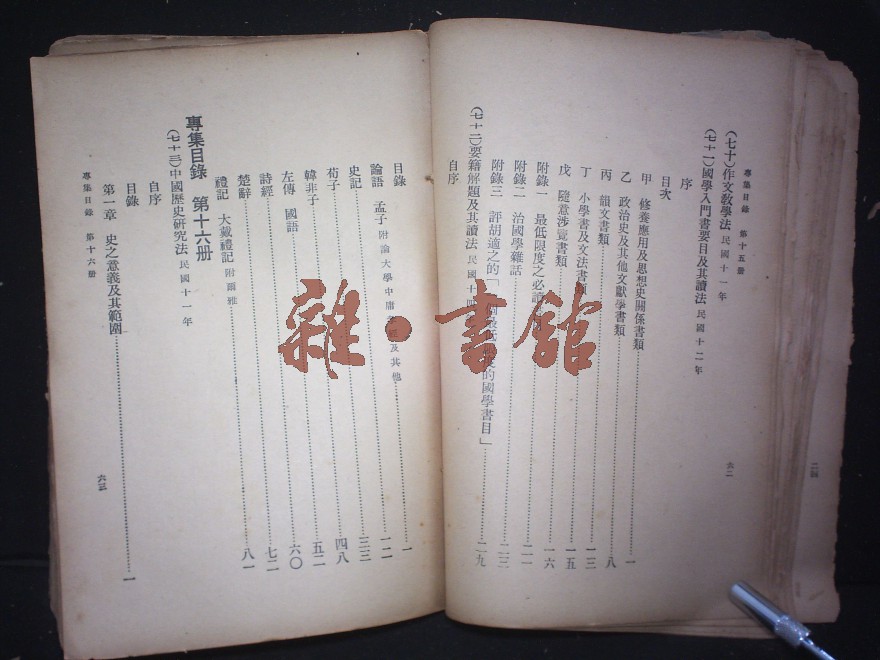 專集目錄 第十五册
(七十)作文教學法 民國十一年
(七十一)國學入門書要目及其讀法 民國十二年
序
目次
甲 修養應用及思想史關係書類 一
乙 政治史及其他文獻學書類 八
丙 韻文書類 一三
丁 小學書及文法書類 一五
戊 隨意涉覽書類 一六
附錄一 最低限度之必讀 二一
附錄二 治國學雜話 二三
附錄三 評胡適之的「一個最低 的國學書目」 二九
(七十二)要籍解題及其讀法 民國十四
自序
六二
二四
目錄 一
論語 孟子 附論大學中庸 及其他 一二
史記 三三
荀子 四八
韓非子 五二
左傳 國語 六〇
詩經 七二
楚辭 八一
禮記 大戴禮記 附爾雅
專集目錄 第十六册
(七十三)中國歷史研究法 民國十一年
自序
目錄
第一章 史之意義及其範圍 一
專集目錄 第十六册
六三
雜·書館